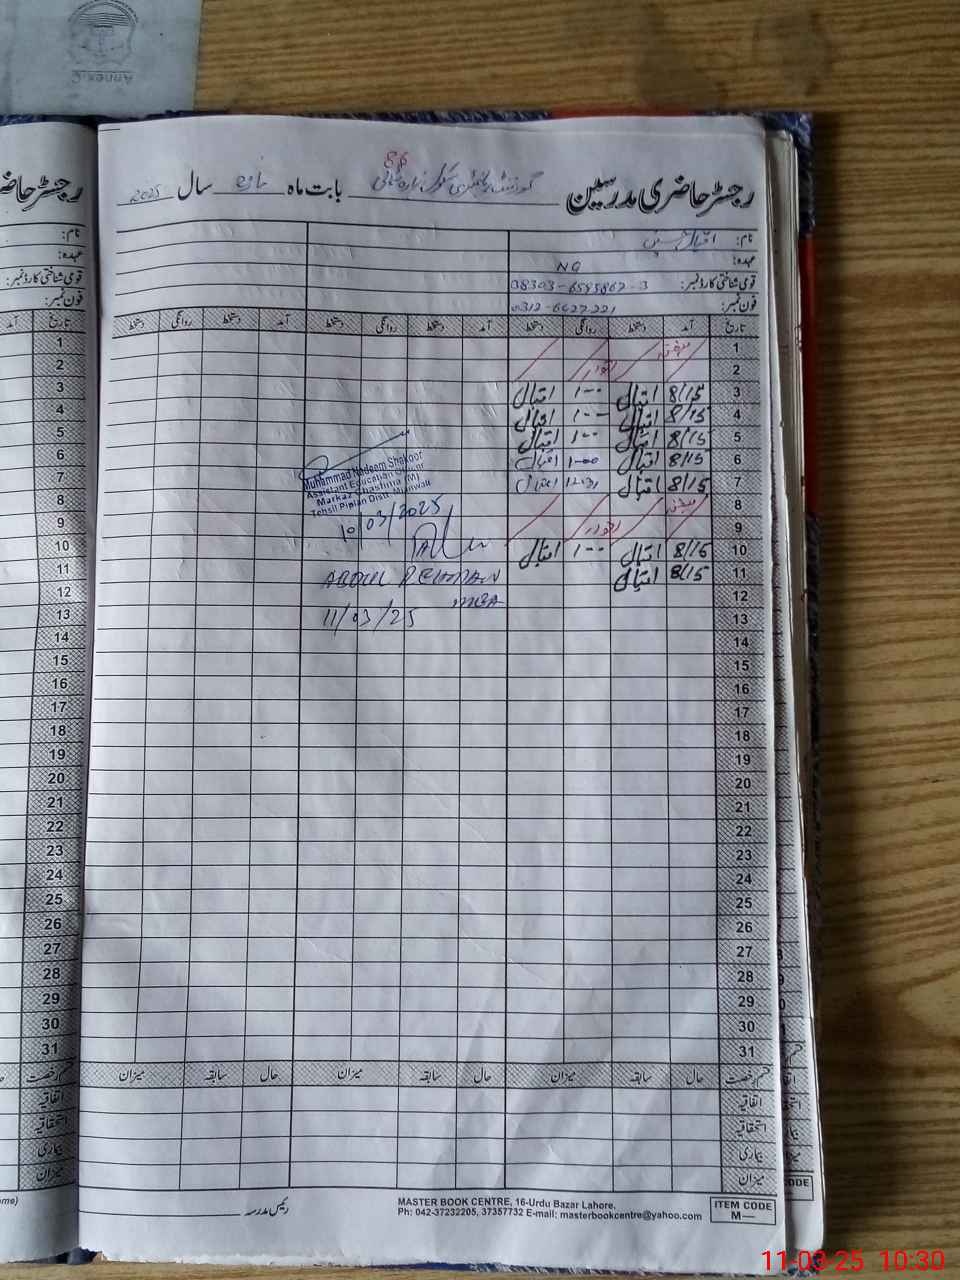 Annex-C
86
رجسٹر حاضری مدرسین گورنمنٹ سکول بابت ماہ مارچ سال 2025
نام: اقبال حسین
عہدہ: NQ
قومی شناختی کارڈ نمبر: 38303-6595867-3
فون نمبر: 0312-6627221
تاریخ آمد دستخط روانگی دستخط آمد دستخط روانگی دستخط آمد دستخط روانگی دستخط
1
2
3 8/15 اقبال ۱-- اقبال
4 8/15 اقبال ۱-- اقبال
5 8/15 اقبال ۱-- اقبال
6 8/15 اقبال ۱-۰۰ اقبال
7 8/15 اقبال اقبال
8
9
10 8/15 اقبال ۱-- اقبال
11 8/15 اقبال
12
13
14
15
16
17
18
19
20
21
22
23
24
25
26
27
28
29
30
31
Muhammad Nadeem Shakoor
Assistant Education Officer
Markaz Chashma (M)
Tehsil Piplan Distt. Mianwali
10/03/2025
ABDUL REHMAN
MEA
11/03/25
قسم رخصت حال سابقہ میزان حال سابقہ میزان حال سابقہ میزان
اتفاقیہ
استحقاقیہ
بیماری
میزان
رئیس مدرسہ
MASTER BOOK CENTRE, 16-Urdu Bazar Lahore.
Ph: 042-37232205, 37357732 E-mail: masterbookcentre@yahoo.com
ITEM CODE
M—
11-03-25 10:30